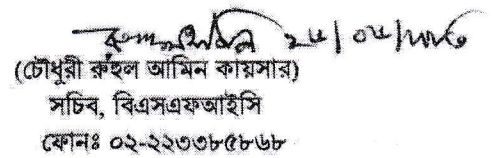 (চৌধুরী রুহুল আমিন কায়সার)
সচিব, বিএসএফআইসি
ফোনঃ ০২-২২৩৩৮৫৮৬৮